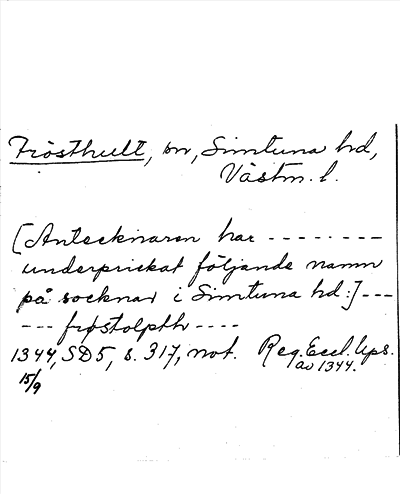 Frösthult, sn, Simtuna hd,
Västm. l.
[Antecknaren har --------
underprickat följande namn
på socknar i Simtuna hd:] ---
--- frøstolpth ----
1344, SD 5, s. 317, not. Reg. Eccl. Ups.
av 1344.
15/9